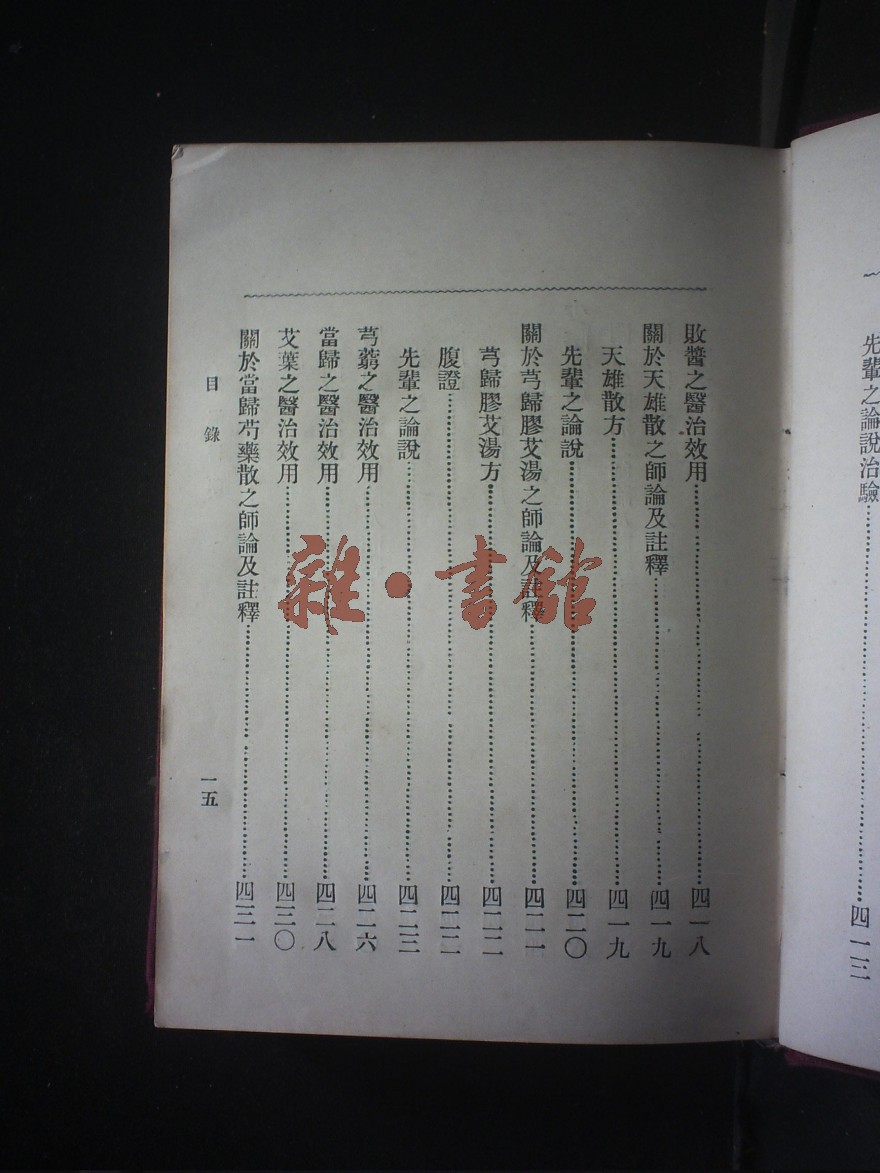 先輩之論說治驗……四一三
敗醬之醫治效用……四一八
關於天雄散之師論及註釋……四一九
天雄散方……四一九
先輩之論說……四二〇
關於芎歸膠艾湯之師論及註釋……四二一
芎歸膠艾湯方……四二二
腹證……四二二
先輩之論說……四二三
芎藭之醫治效用……四二六
當歸之醫治效用……四二八
艾葉之醫治效用……四三〇
關於當歸芍藥散之師論及註釋……四三一
目錄
一五
雜·書館